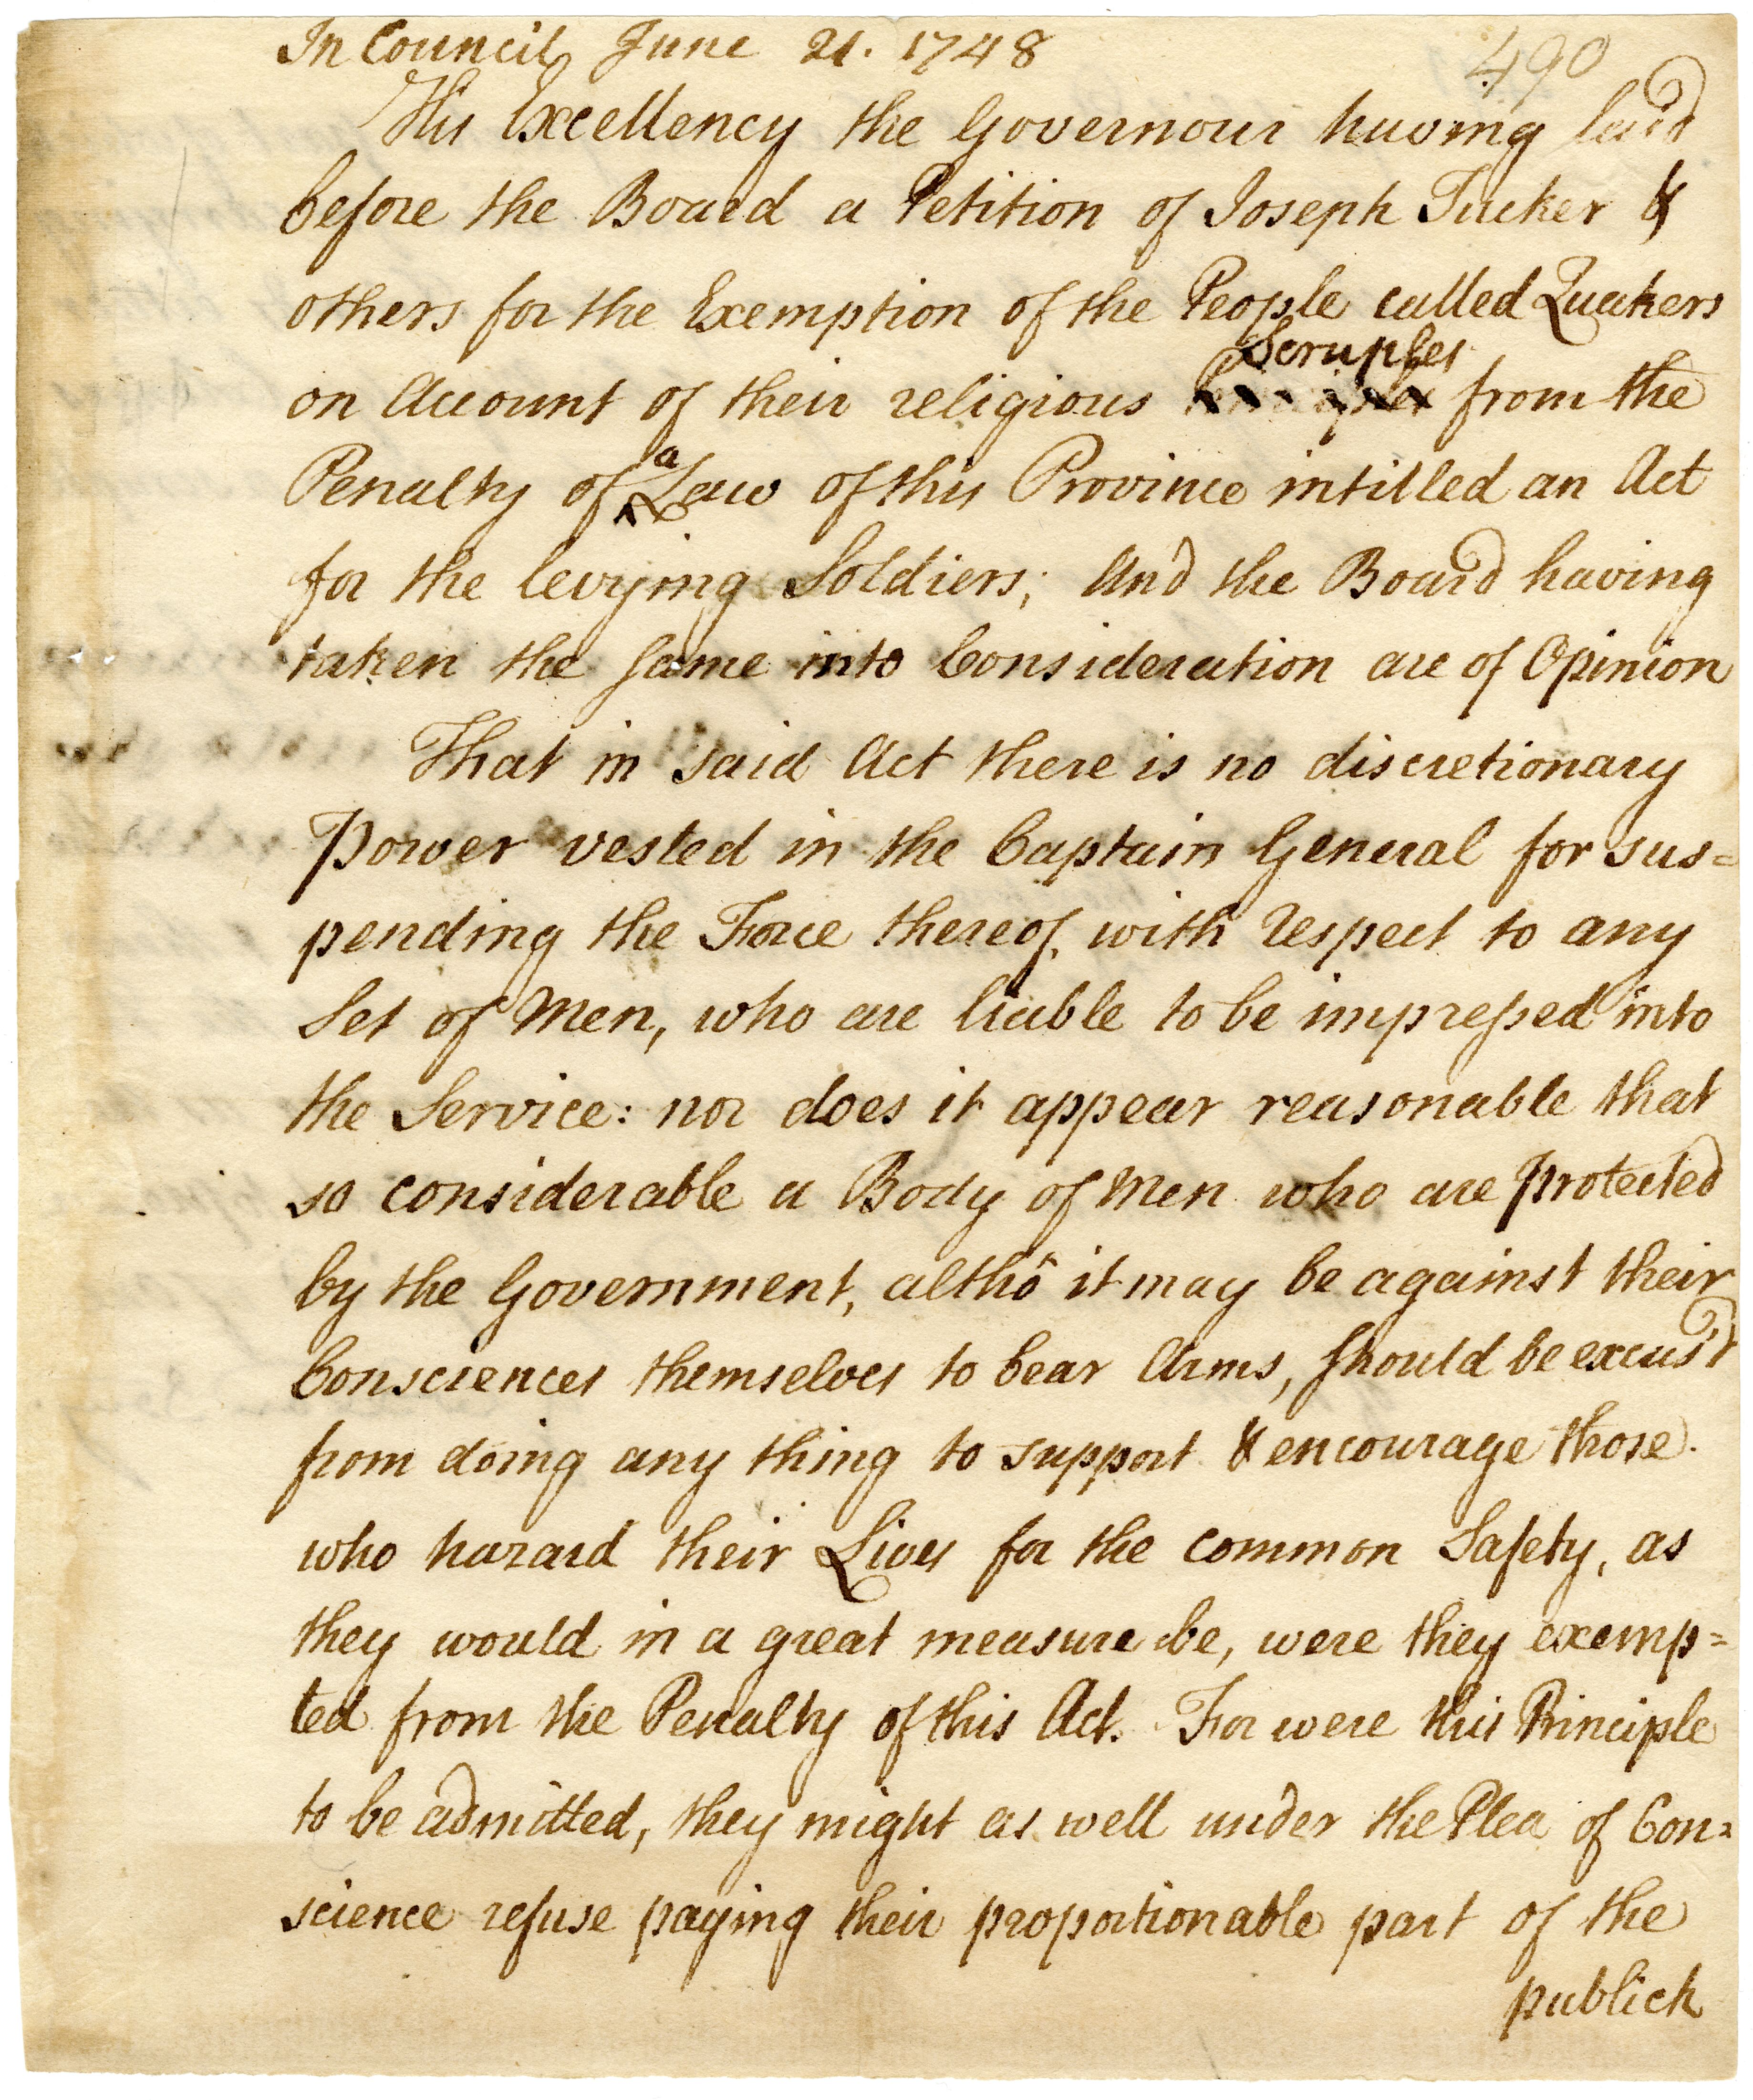 In Council June 21. 1748
490
His Excellency the Governour having laid
before the Board a Petition of Joseph Tucker &
others for the Exemption of the People called Quakers
Scruples
on Account of their religious from the
a
Penalty of Law of this Province intitled an Act
for the levying Soldiers; And the Board having
taken the same into Consideration are of Opinion
That in said Act there is no discretionary
Power vested in the Captain General for sus=
pending the Force thereof, with respect to any
Set of Men, who are liable to be impressed into
the Service: nor does it appear reasonable that
so considerable a Body of Men who are protected
by the Government, altho it may be against their
Consciences themselves to bear Arms, should be excus'd
from doing any thing to support & encourage those
who hazard their Lives for the common Safety, as
they would in a great measure be, were they exemp=
ted from the Penalty of this Act. For were this Principle
to be admitted, they might as well under the Plea of Con=
science refuse paying their proportionable part of the
publick